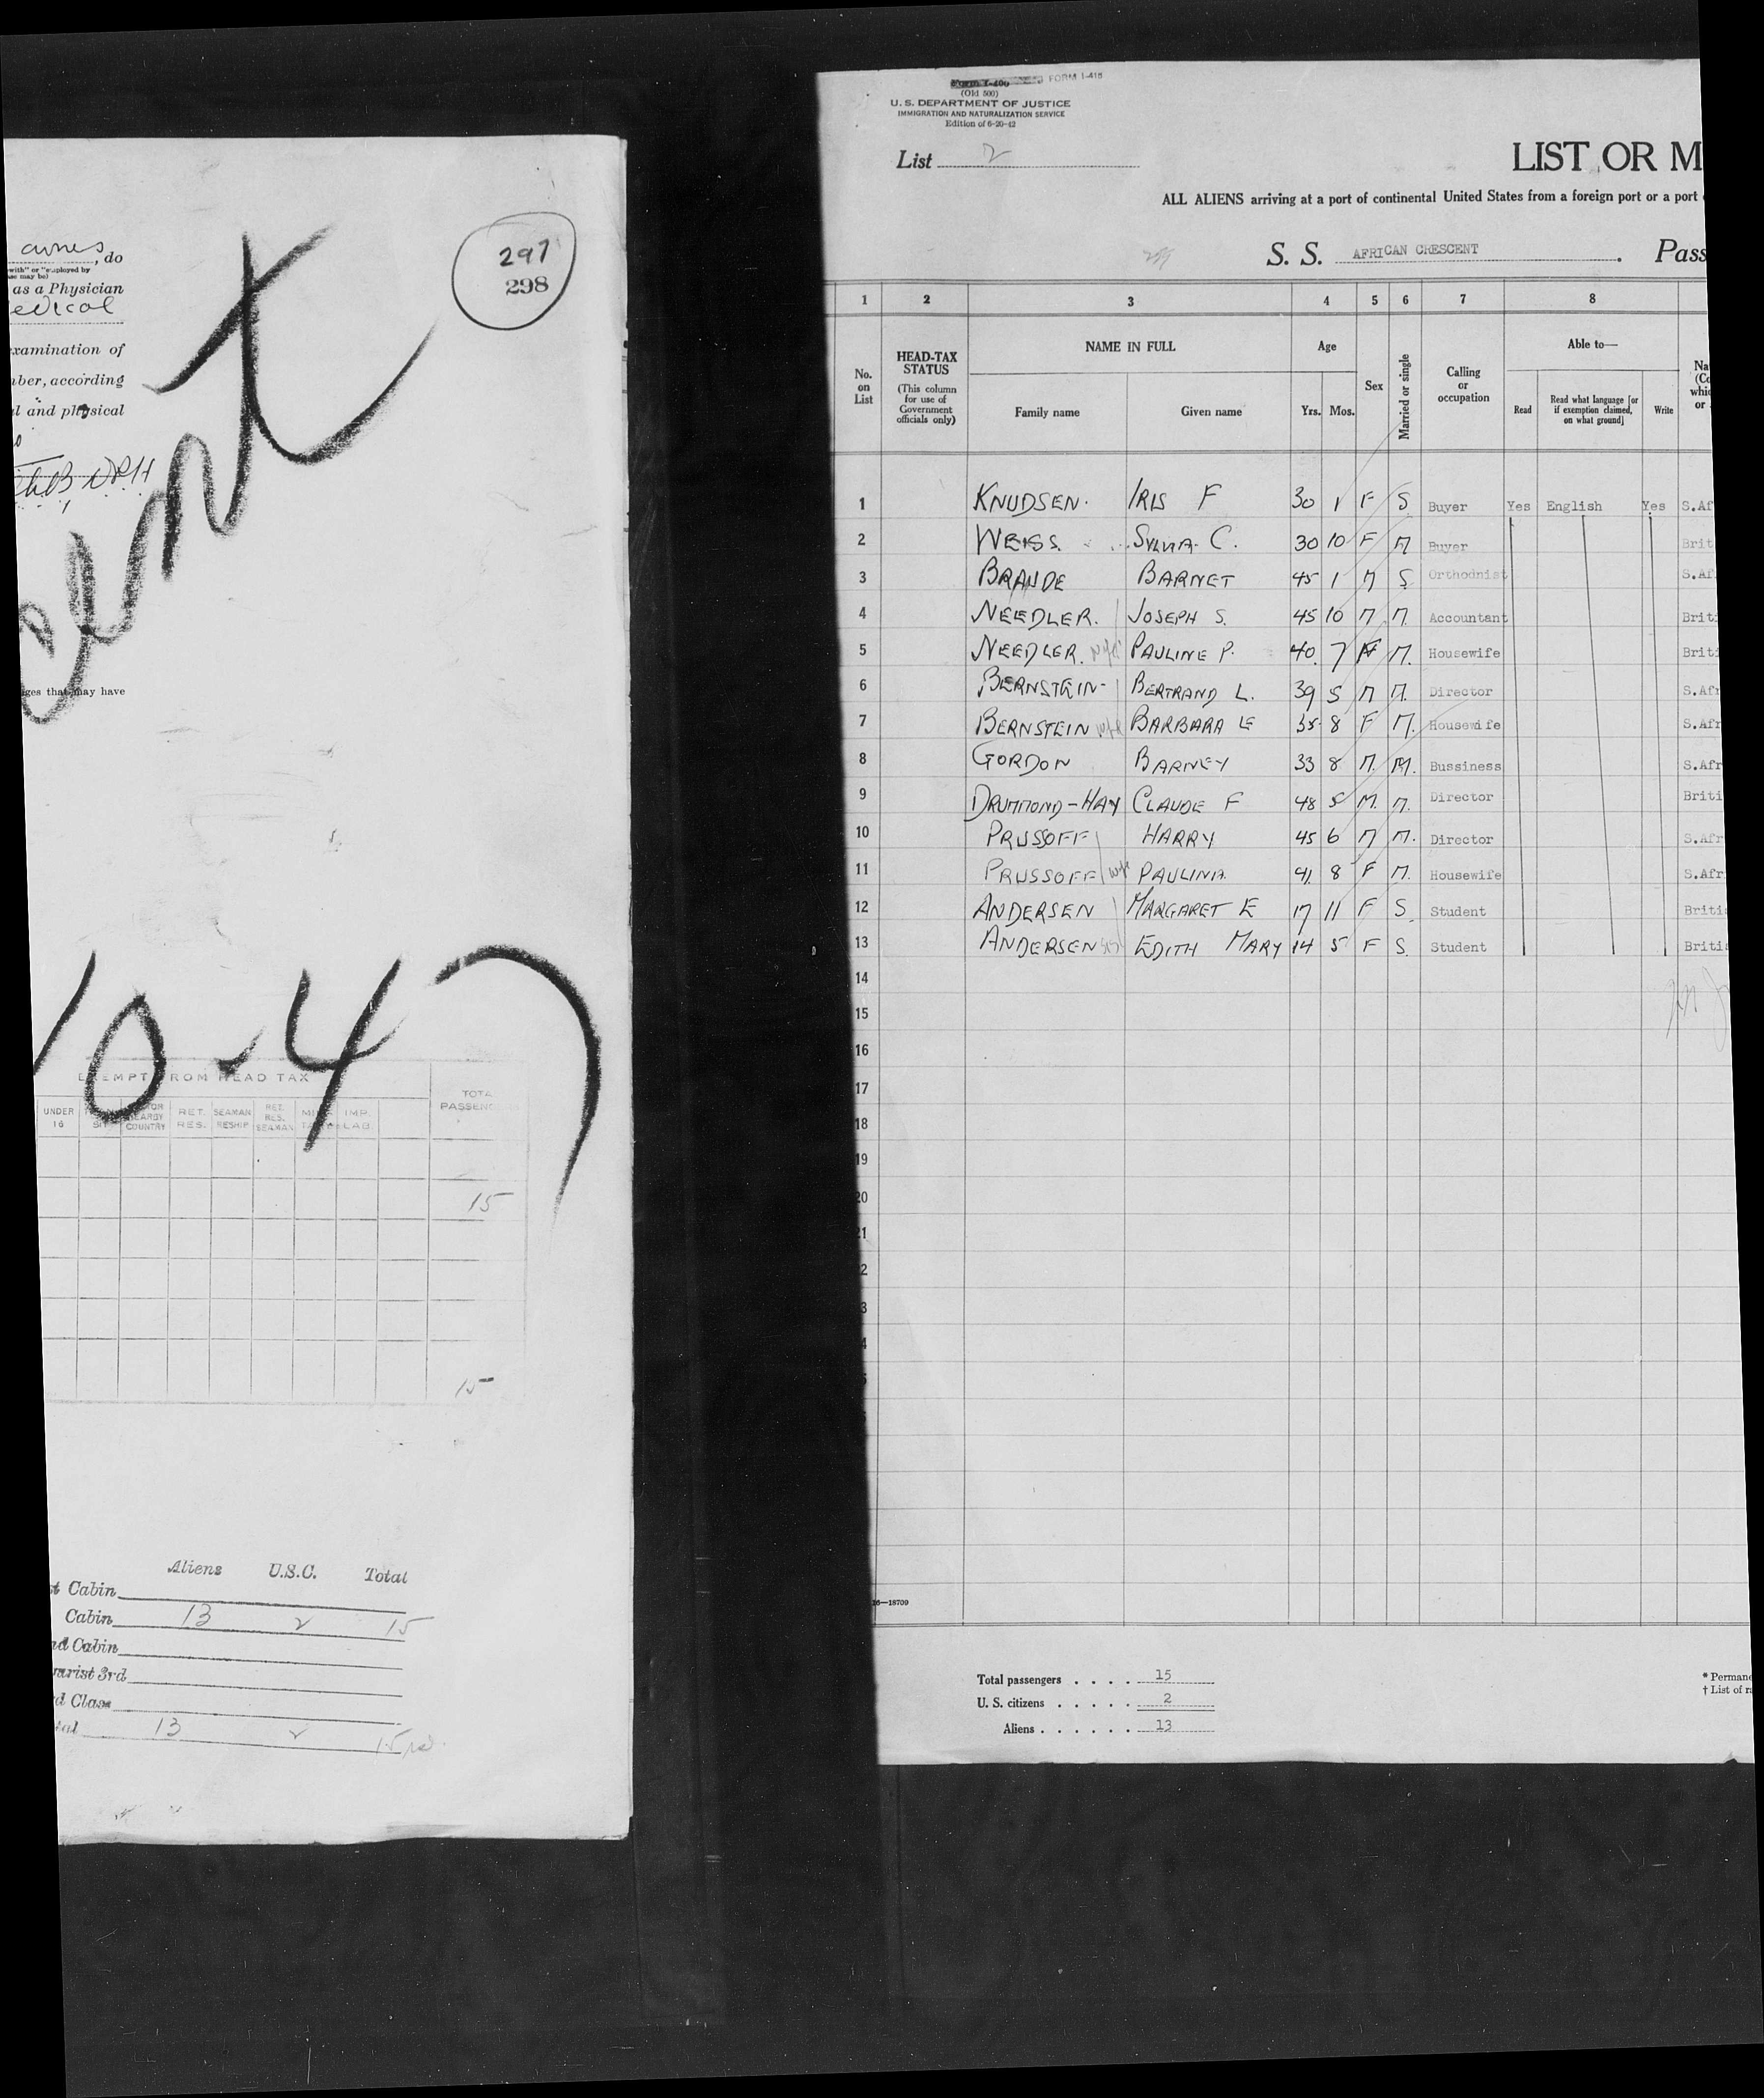 297
298
awnes, do
with" or "employed by
se may be)
as a Physician
edical
xamination of
ber, according
l and physical
ent
ges that may have
10-47
EXEMPT FROM HEAD TAX
TOTAL
PASSENG
UNDER 16
NEARBY COUNTRY
RET. RES.
SEAMAN RESHIP
RET. RES. SEAMAN
IMP. LAB.
15
15
Aliens U.S.C. Total
t Cabin
Cabin 13 2 15
d Cabin
urist 3rd
d Class
tal 13 2 15
Form I-400 FORM I-415
(Old 500)
U. S. DEPARTMENT OF JUSTICE
IMMIGRATION AND NATURALIZATION SERVICE
Edition of 6-20-42
List 2
LIST OR M
ALL ALIENS arriving at a port of continental United States from a foreign port or a port
S. S. AFRICAN CRESCENT. Pass
1 2 3 4 5 6 7 8
No. on List
HEAD-TAX STATUS
(This column for use of Government officials only)
NAME IN FULL
Family name Given name
Age
Yrs. Mos.
Sex
Married or single
Calling or occupation
Able to—
Read
Read what language [or if exemption claimed, on what ground]
Write
1 KNUDSEN. IRIS F 30 1 F S Buyer Yes English Yes S.Af
2 WEISS. SYLVIA C. 30 10 F M Buyer Brit
3 BRANDE BARNET 45 1 M S Orthodnist S.Af
4 NEEDLER. JOSEPH S. 45 10 M M. Accountant Briti
5 NEEDLER. wife PAULINE P. 40 7 F M. Housewife Briti
6 BERNSTEIN- BERTRAND L. 39 5 M M. Director S.Afr
7 BERNSTEIN wife BARBARA E 35 8 F M. Housewife S.Afr
8 GORDON BARNEY 33 8 M. M. Bussiness S.Afr
9 DRUMMOND-HAY CLAUDE F 48 5 M. M. Director Briti
10 PRUSSOFF HARRY 45 6 M M. Director S.Afr
11 PRUSSOFF wife PAULINA 41 8 F M. Housewife S.Afr
12 ANDERSEN MARGARET E 17 11 F S. Student Britis
13 ANDERSEN sis EDITH MARY 14 5 F S. Student Britis
14
15
16
17
18
19
20
21
2
3
4
16—18709
Total passengers . . . . 15
U. S. citizens . . . . . 2
Aliens . . . . . . 13
* Permane
† List of r